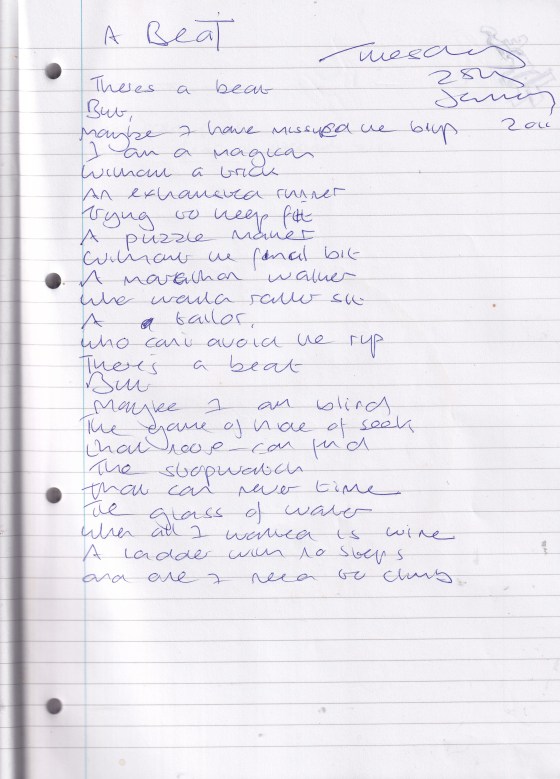 A Beat
Tuesday
25th
January
2011
Theres a beat
But,
Maybe I have missed the blip
I am a magician
Without a trick
An exhausted runner
Trying to keep fit
A puzzle maker
Without the final bit
A marathon walker
who would rather sit
A tailor,
who can't avoid the rip
There's a beat
But
Maybe I am blind
The game of hide of seek
that noone can find
The stopwatch
that can never time
The glass of water
when all I wanted is wine
A ladder with no steps
and one I need to climb